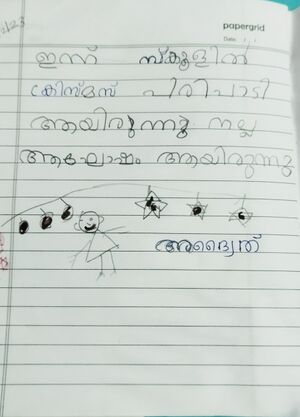 papergrid
Date: / /
/23
ഇന്ന് സ്കൂളിൽ
ക്രിസ്മസ് പരിപാടി
ആയിരുന്നു നല്ല
ആഘോഷം ആയിരുന്നു
അദ്വൈത്